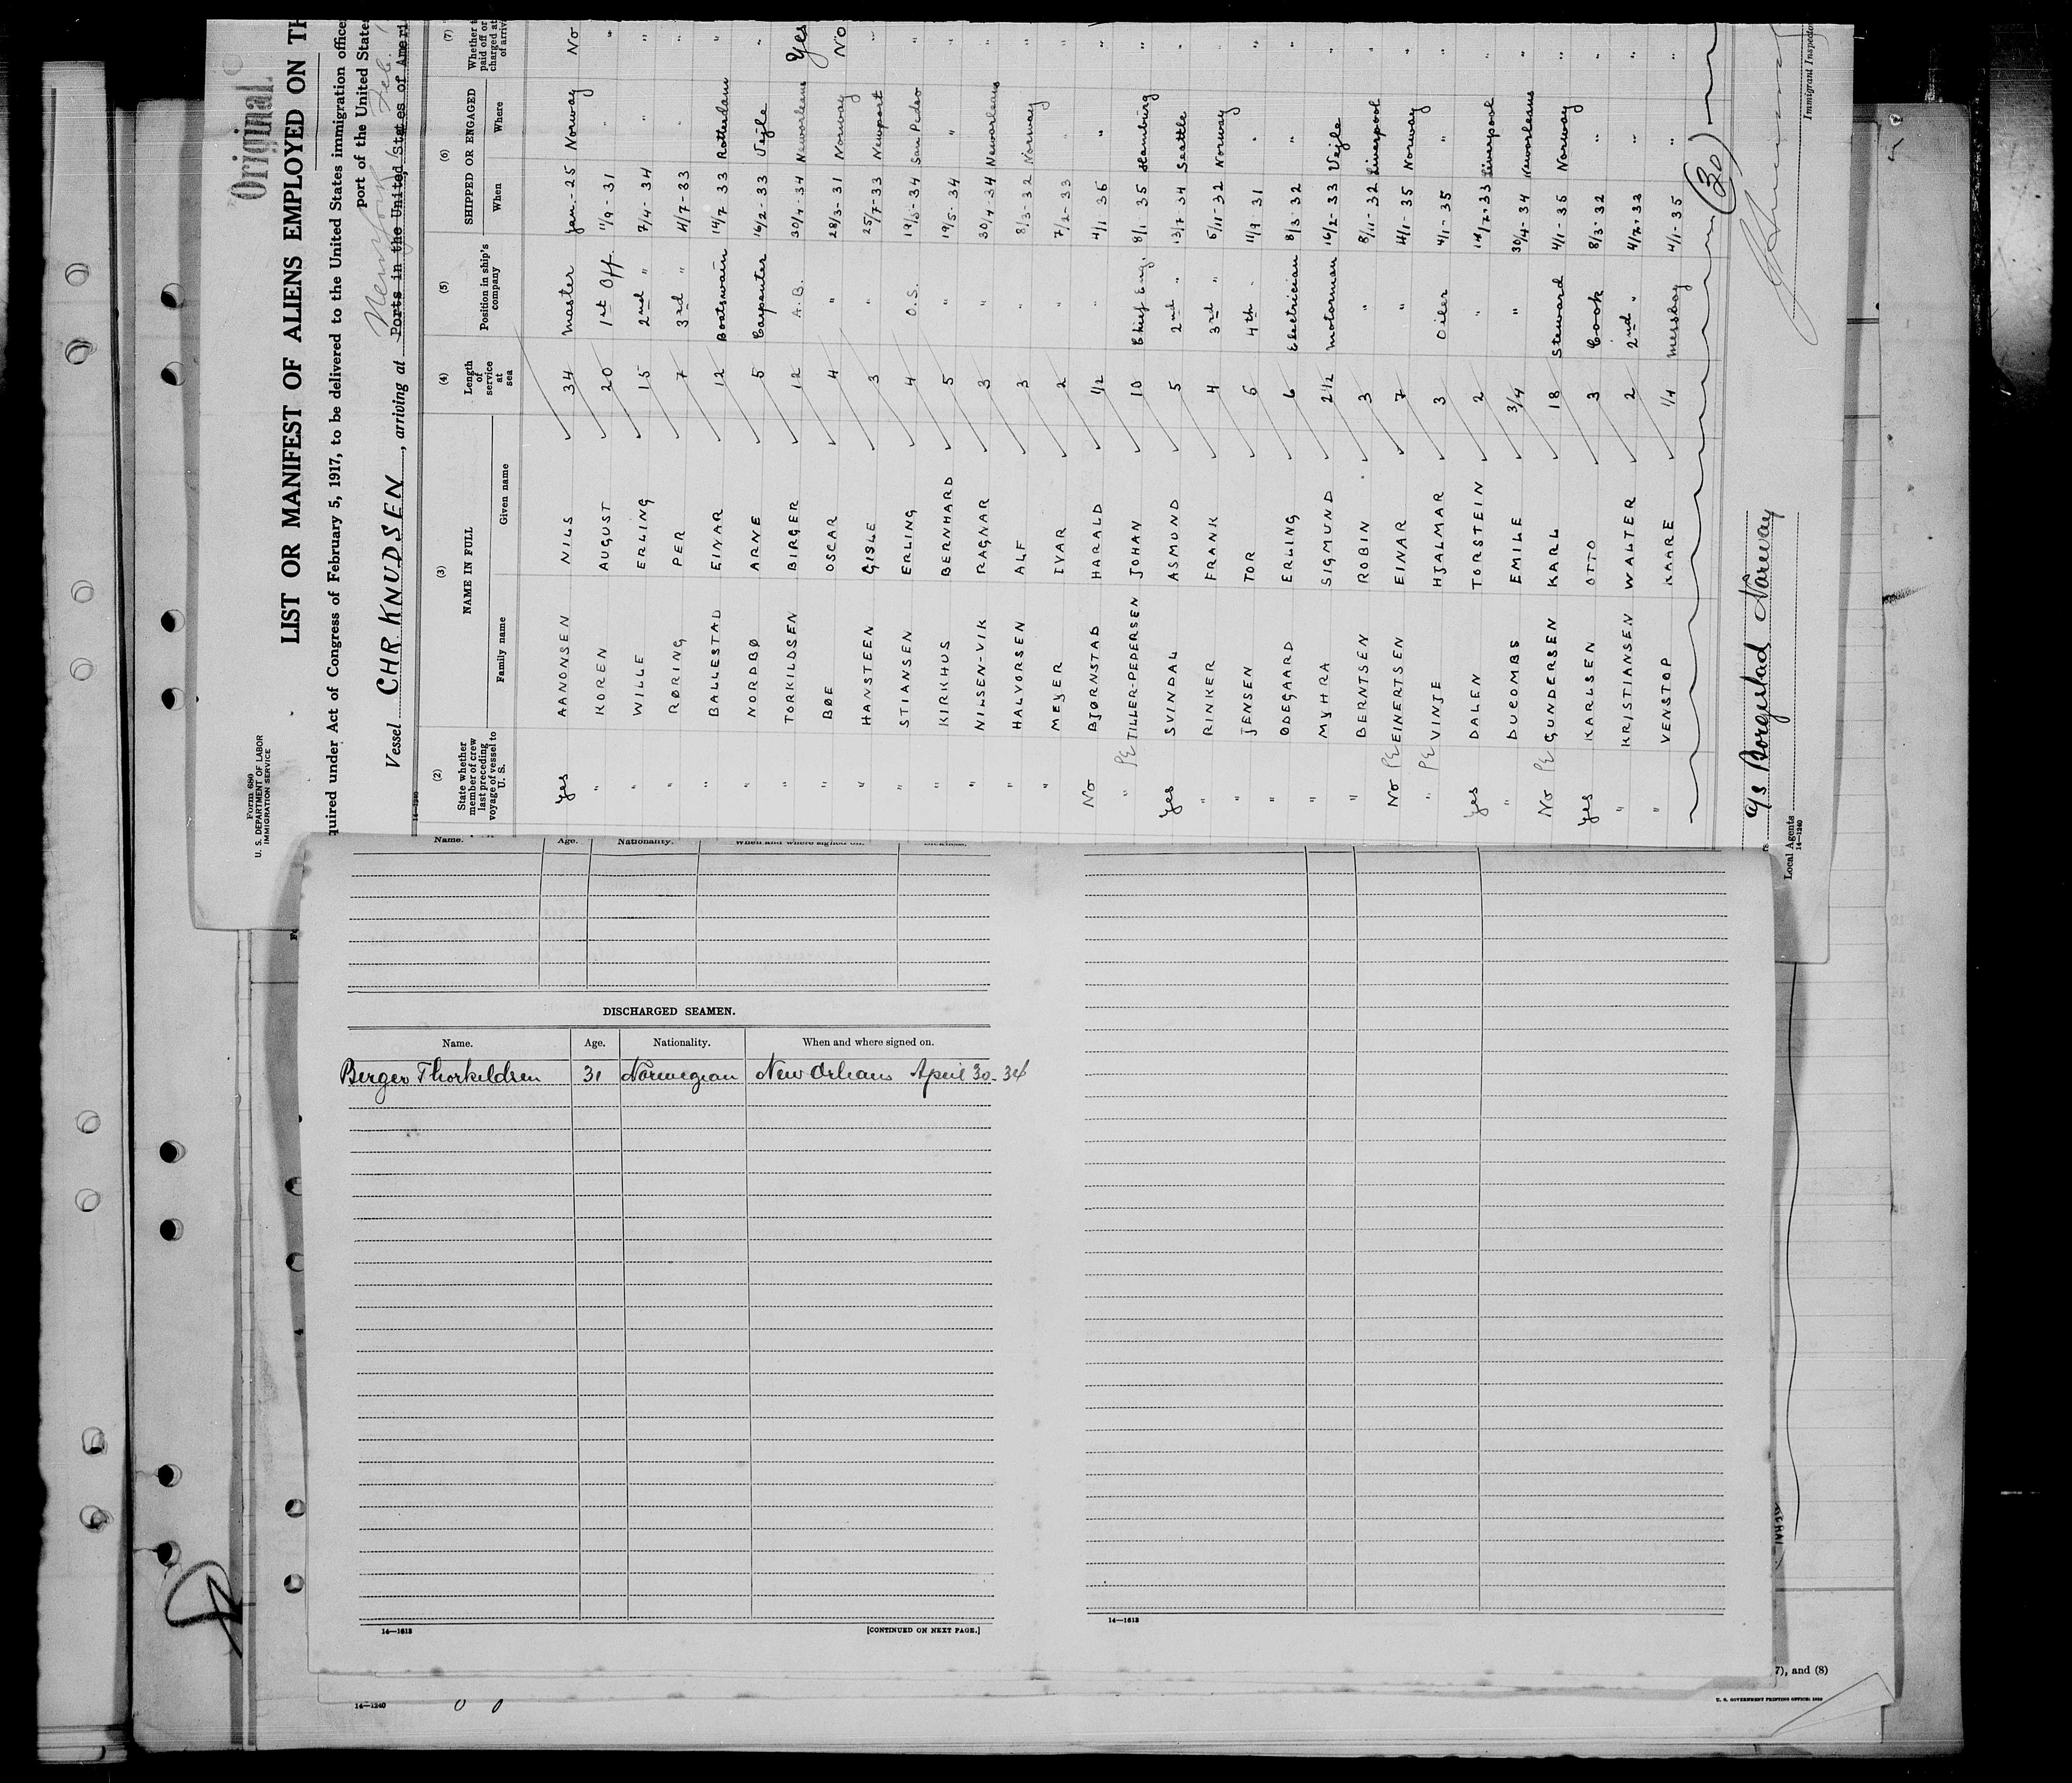 Original
LIST OR MANIFEST OF ALIENS EMPLOYED ON TH
Form 680
U. S. DEPARTMENT OF LABOR
IMMIGRATION SERVICE
quired under Act of Congress of February 5, 1917, to be delivered to the United States immigration office
port of the United States
Vessel CHR KNUDSEN, arriving at Ports in the United States of Ameri
14—1240
(2) (3) (4) (5) (6) (7)
State whether member of crew last preceding voyage of vessel to U. S. NAME IN FULL Length of service at sea Position in ship's company SHIPPED OR ENGAGED
Family name Given name When Where
yes AANONSEN NILS 34 Master Jan.- 25 Norway No
" KOREN AUGUST 20 1st Off. 11/9 - 31 " "
" WILLE ERLING 15 2nd " 7/4 - 34 " "
" RØRING PER 7 3rd " 4/7 - 33 " "
" BALLESTAD EINAR 12 Boatswain 14/7 - 33 Rotterdam "
" NORDBØ ARNE 5 Carpenter 16/2 - 33 Vejle "
" TORKILDSEN BIRGER 12 A.B. 30/4 - 34 Neworleans Yes
" BØE OSCAR 4 " 28/3 - 31 Norway No
" HANSTEEN GISLE 3 " 25/7 - 33 Newport "
" STIANSEN ERLING 4 O.S. 19/5 - 34 San Pedro "
" KIRKHUS BERNHARD 5 " 19/5 - 34 " "
" NILSEN-VIK RAGNAR 3 " 30/4 - 34 Neworleans "
" HALVORSEN ALF 3 " 8/3 - 32 Norway "
" MEYER IVAR 2 " 7/2 - 33 " "
No BJØRNSTAD HARALD 1/2 " 4/1 35 " "
" PE TILLER-PEDERSEN JOHAN 10 Chief Eng. 8/1 35 Hamburg "
yes SVINDAL ASMUND 5 2nd " 13/7 34 Seattle "
" RINKER FRANK 4 3rd " 5/11 - 32 Norway "
" JENSEN TOR 6 4th " 11/9 31 " "
" ØDEGAARD ERLING 6 Electrician 8/3 32 " "
" MYHRA SIGMUND 2 1/2 Motorman 16/2 - 33 Vejle "
" BERNTSEN ROBIN 3 " 8/11 - 32 Liverpool "
No PE EINERTSEN EINAR 7 " 4/1 - 35 Norway "
" PE VINJE HJALMAR 3 Oiler 4/1 - 35 " "
yes DALEN TORSTEIN 2 " 14/2 - 33 Liverpool "
" DUCOMBS EMILE 3/4 " 30/4 - 34 Neworleans "
No PE GUNDERSEN KARL 18 Steward 4/1 - 35 Norway "
yes KARLSEN OTTO 3 Cook 8/3 - 32 " "
" KRISTIANSEN WALTER 2 2nd " 4/7 - 33 " "
" VENSTOP KAARE 1/4 Messboy 4/1 - 35 " "
(30)
A/s Borgestad Norway
Local Agents
14—1240
Immigrant Inspector
Name. Age. Nationality. When and where signed on.
DISCHARGED SEAMEN.
Name. Age. Nationality. When and where signed on.
Berger Thorkildsen 31 Norwegian New Orleans April 30-34
14—1613 [CONTINUED ON NEXT PAGE.]
14—1613
7), and (8)
14—1240
U. S. GOVERNMENT PRINTING OFFICE: